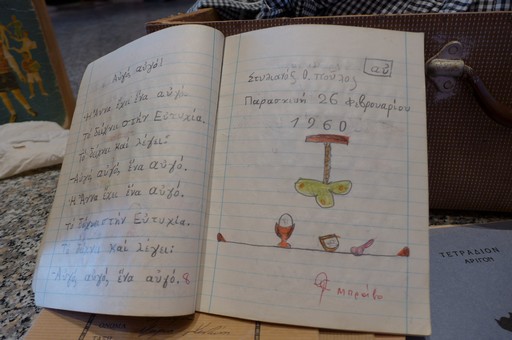 Αὐγό, αὐγό!
Ἡ Ἄννα ἔχει ἕνα αὐγό.
Τὸ δείχνει στὴν Εὐτυχία.
Τὸ δείχνει καὶ λέγει:
-Αὐγό, αὐγό, ἕνα αὐγό.
Ἡ Ἄννα ἔχει ἕνα αὐγό.
Τὸ δείχνει στὴν Εὐτυχία.
Τὸ δείχνει καὶ λέγει:
-Αὐγό, αὐγό, ἕνα αὐγό.
αὐ
Στυλιανός Θ.
Παρασκευή 26 Φεβρουαρίου
1960
Μπράβο
ΤΕΤΡΑΔΙΟΝ